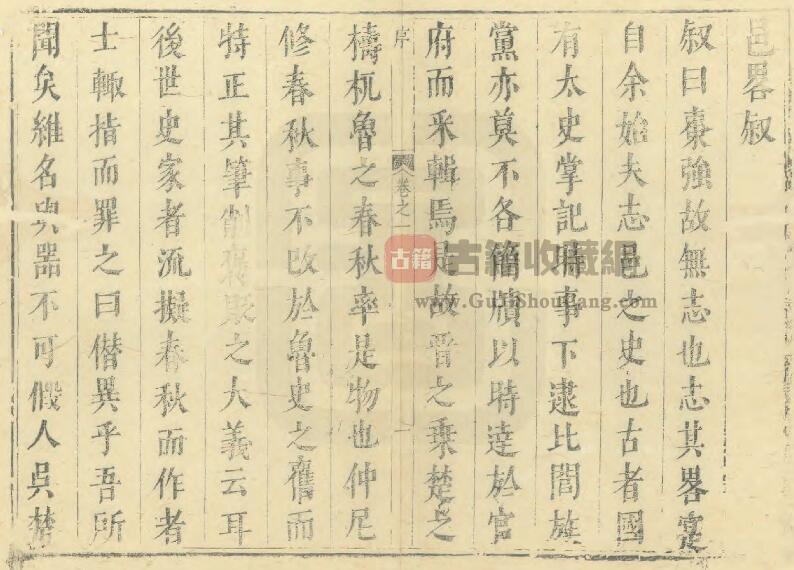 邑畧叙
叙曰棗強故無志也志其畧寔
自余始夫志邑之史也古者國
有太史掌記時事下逮比閭族
黨亦莫不各籍牘以時達於官
府而采輯焉是故晋之乗楚之
序 卷之一 一
檮杌魯之春秋率是物也仲尼
修春秋事不改於魯史之舊而
特正其筆削褒貶之大義云耳
後世史家者流擬春秋而作者
士輙指而罪之曰僣異乎吾所
聞矣維名與器不可假人吳楚
古籍 古籍收藏網
www.GujiShouCang.com